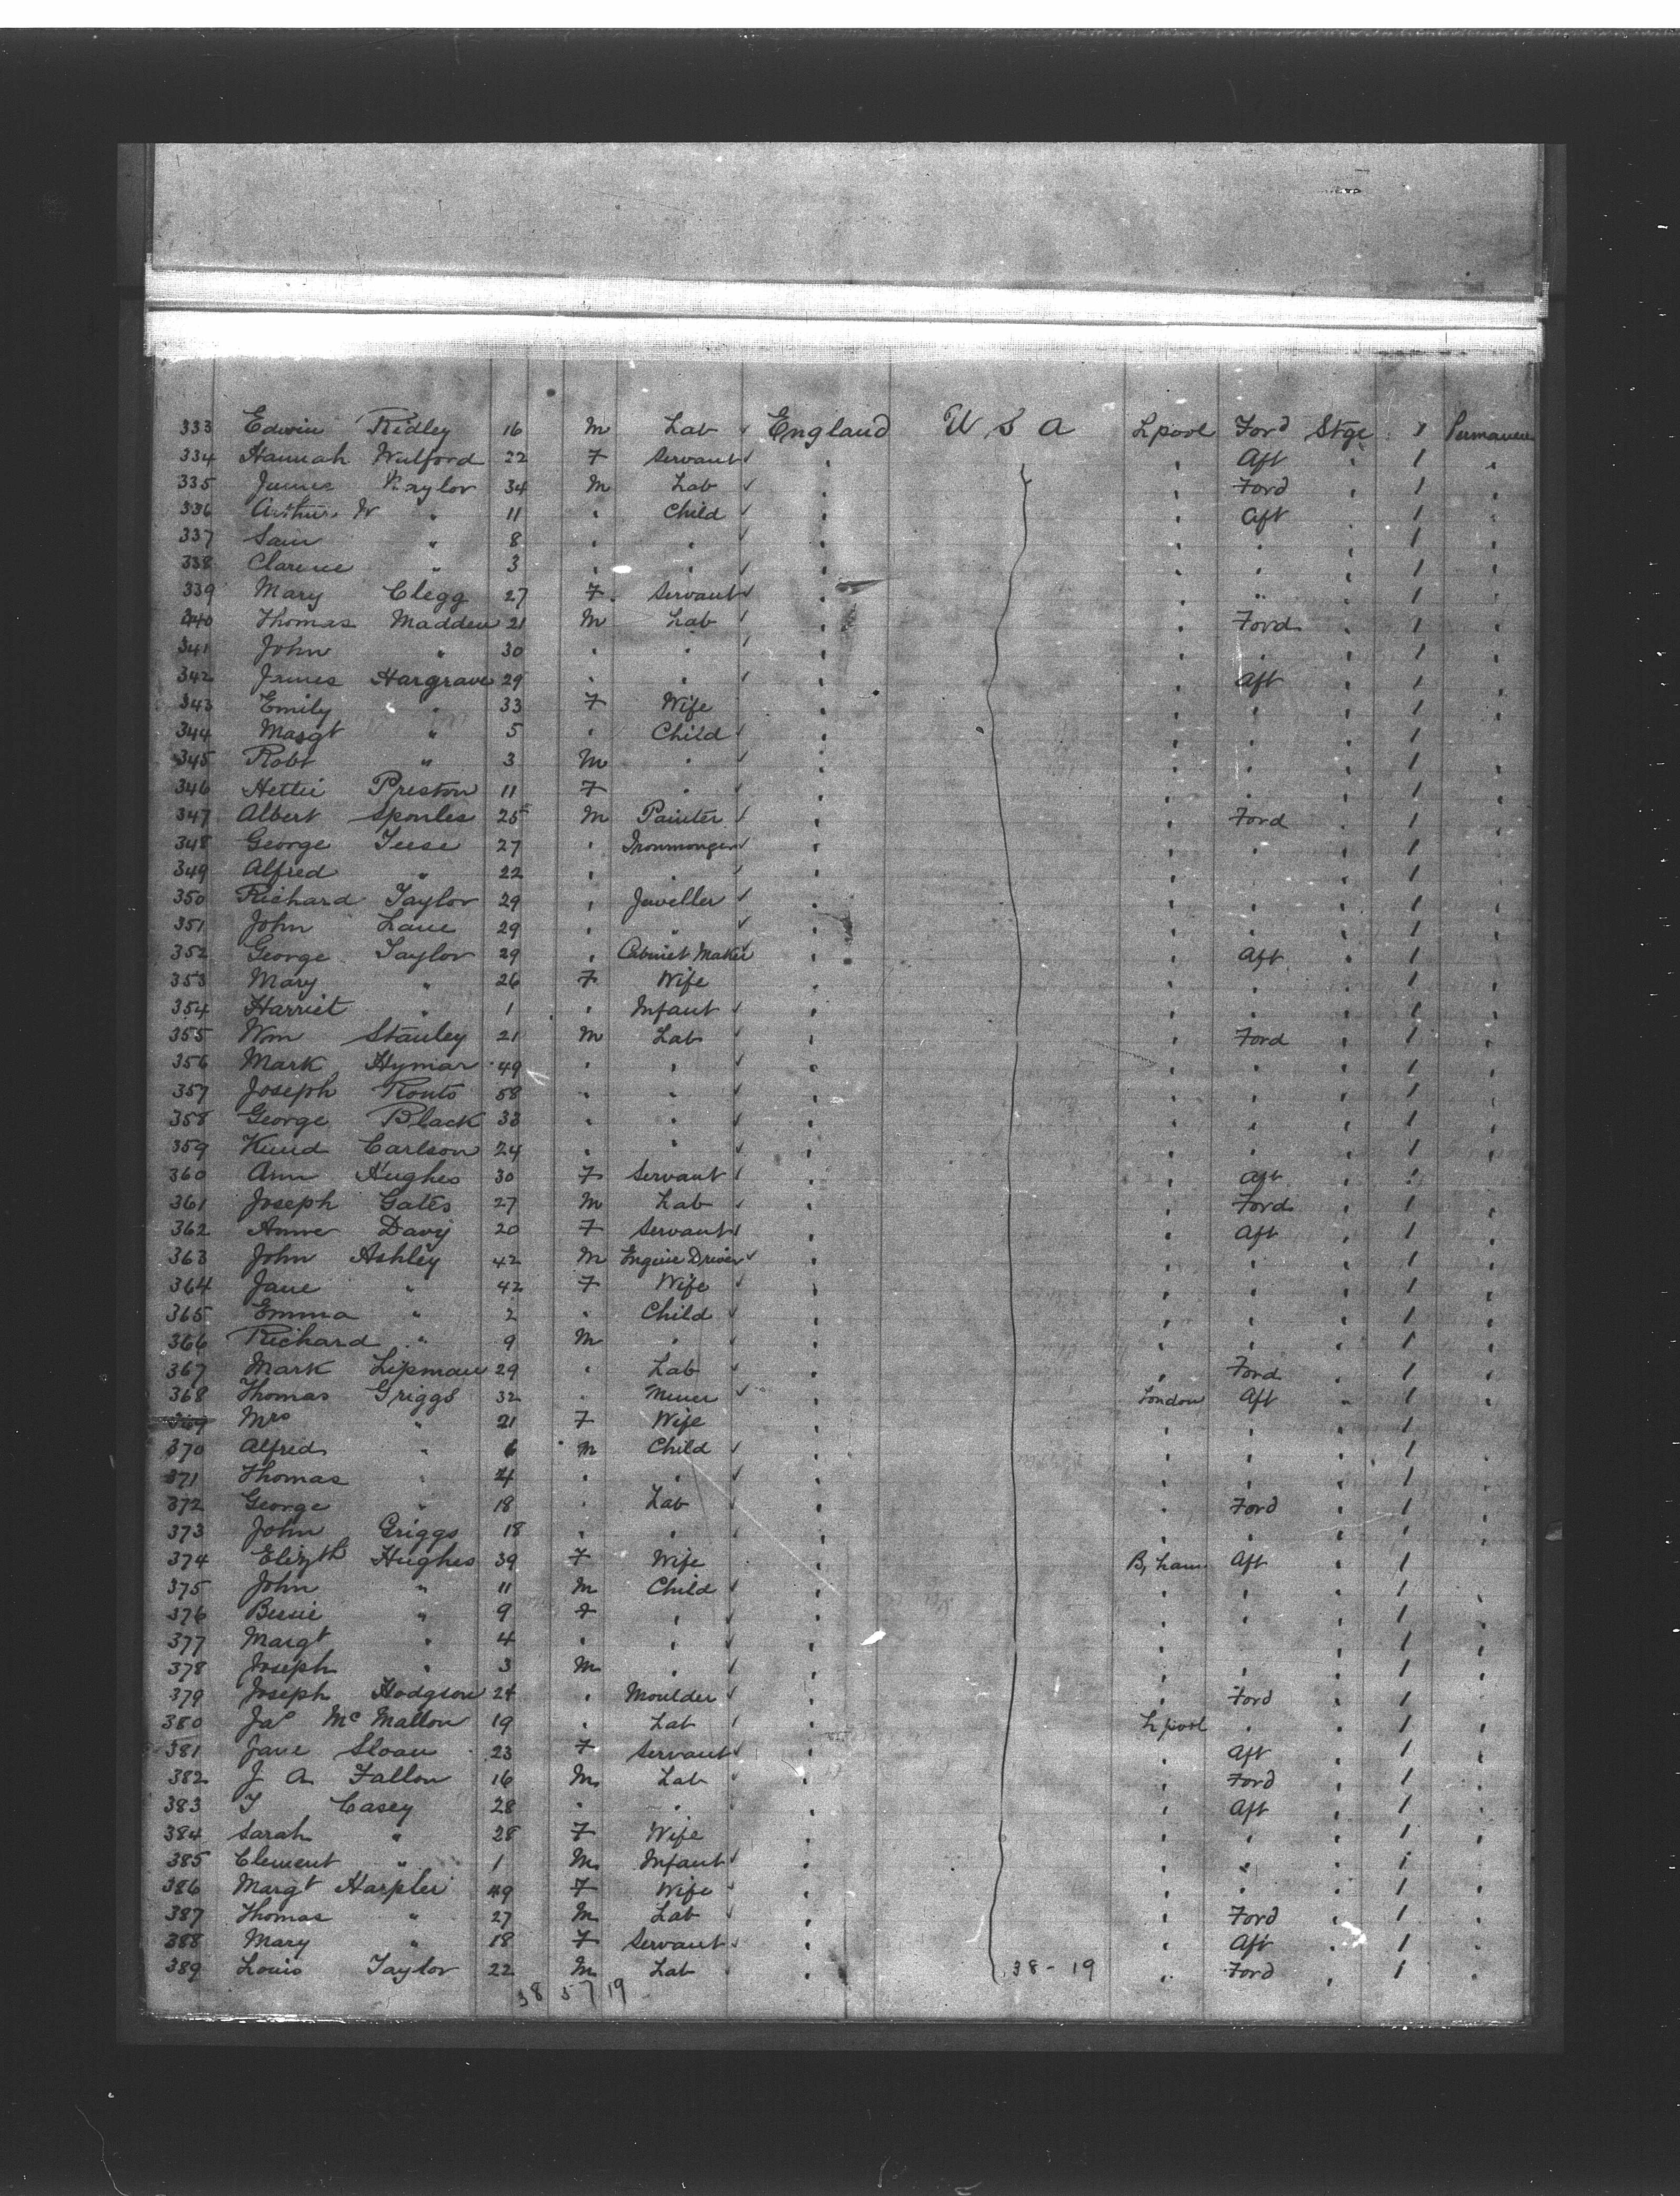 333 Edwin Ridley 16 M Lab ✓ England U S A Lpool Ford Stge 1 Permanen
334 Hannah Wulford 22 F Servant ✓ " " Aft " 1 "
335 James Naylor 34 M Lab ✓ " " Ford " 1 "
336 Arthur W " 11 " Child ✓ " " Aft " 1 "
337 Sam " 8 " " ✓ " " " " 1 "
338 Clarence " 3 " " ✓ " " " " 1 "
339 Mary Clegg 27 F Servant ✓ " " " " 1 "
340 Thomas Madden 21 M Lab ✓ " " Ford " 1 "
341 John " 30 " " ✓ " " " " 1 "
342 James Hargrave 29 " " ✓ " " Aft " 1 "
343 Emily " 33 F Wife " " " " 1 "
344 Masgt " 5 " Child ✓ " " " " 1 "
345 Robt " 3 M " ✓ " " " " 1 "
346 Hettie Preston 11 F " ✓ " " " " 1 "
347 Albert Sponles 25 M Painter ✓ " " Ford " 1 "
348 George Teese 27 " Ironmonger ✓ " " " " 1 "
349 Alfred " 22 " " ✓ " " " " 1 "
350 Richard Taylor 29 " Jeweller ✓ " " " " 1 "
351 John Lane 29 " " ✓ " " " " 1 "
352 George Taylor 29 " Cabinet Maker " " Aft " 1 "
353 Mary " 26 F Wife " " " " 1 "
354 Harriet " 1 " Infant ✓ " " " " 1 "
355 Wm Stanley 21 M Lab ✓ " " Ford " 1 "
356 Mark Hymar 49 " " ✓ " " " " 1 "
357 Joseph Routs 58 " " ✓ " " " " 1 "
358 George Black 33 " " ✓ " " " " 1 "
359 Knud Carlson 24 " " ✓ " " " " 1 "
360 Ann Hughes 30 F Servant ✓ " " Aft " 1 "
361 Joseph Gates 27 M Lab ✓ " " Ford " 1 "
362 Anne Davy 20 F Servant ✓ " " Aft " 1 "
363 John Ashley 42 M Engine Driver ✓ " " " " 1 "
364 Jane " 42 F Wife ✓ " " " " 1 "
365 Emma " 2 " Child ✓ " " " " 1 "
366 Richard " 9 M " ✓ " " " " 1 "
367 Mark Lipman 29 " Lab ✓ " " Ford " 1 "
368 Thomas Griggs 32 " Miner ✓ " London Aft " 1 "
369 Mrs " 21 F Wife " " " " 1 "
370 Alfred " 6 M Child ✓ " " " " 1 "
371 Thomas " 4 " " ✓ " " " " 1 "
372 George " 18 " Lab ✓ " " Ford " 1 "
373 John Griggs 18 " " ✓ " " " " 1 "
374 Elizth Hughes 39 F Wife " B,ham Aft " 1 "
375 John " 11 M Child ✓ " " " " 1 "
376 Bessie " 9 F " ✓ " " " " 1 "
377 Margt " 4 " " ✓ " " " " 1 "
378 Joseph " 3 M " ✓ " " " " 1 "
379 Joseph Hodgson 24 " Moulder ✓ " " Ford " 1 "
380 Jas McMallon 19 " Lab ✓ " Lpool " " 1 "
381 Jane Sloan 23 F Servant ✓ " " Aft " 1 "
382 J A Fallon 16 M Lab ✓ " " Ford " 1 "
383 T Casey 28 " " " " Aft " 1 "
384 Sarah " 28 F Wife " " " " 1 "
385 Clement " 1 M Infant ✓ " " " " 1 "
386 Margt Harpler 49 F Wife ✓ " " " " 1 "
387 Thomas " 27 M Lab ✓ " " Ford " 1 "
388 Mary " 18 F Servant ✓ " " Aft " 1 "
389 Louis Taylor 22 M Lab ✓ " 38-19 " Ford " 1 "
38 57 19